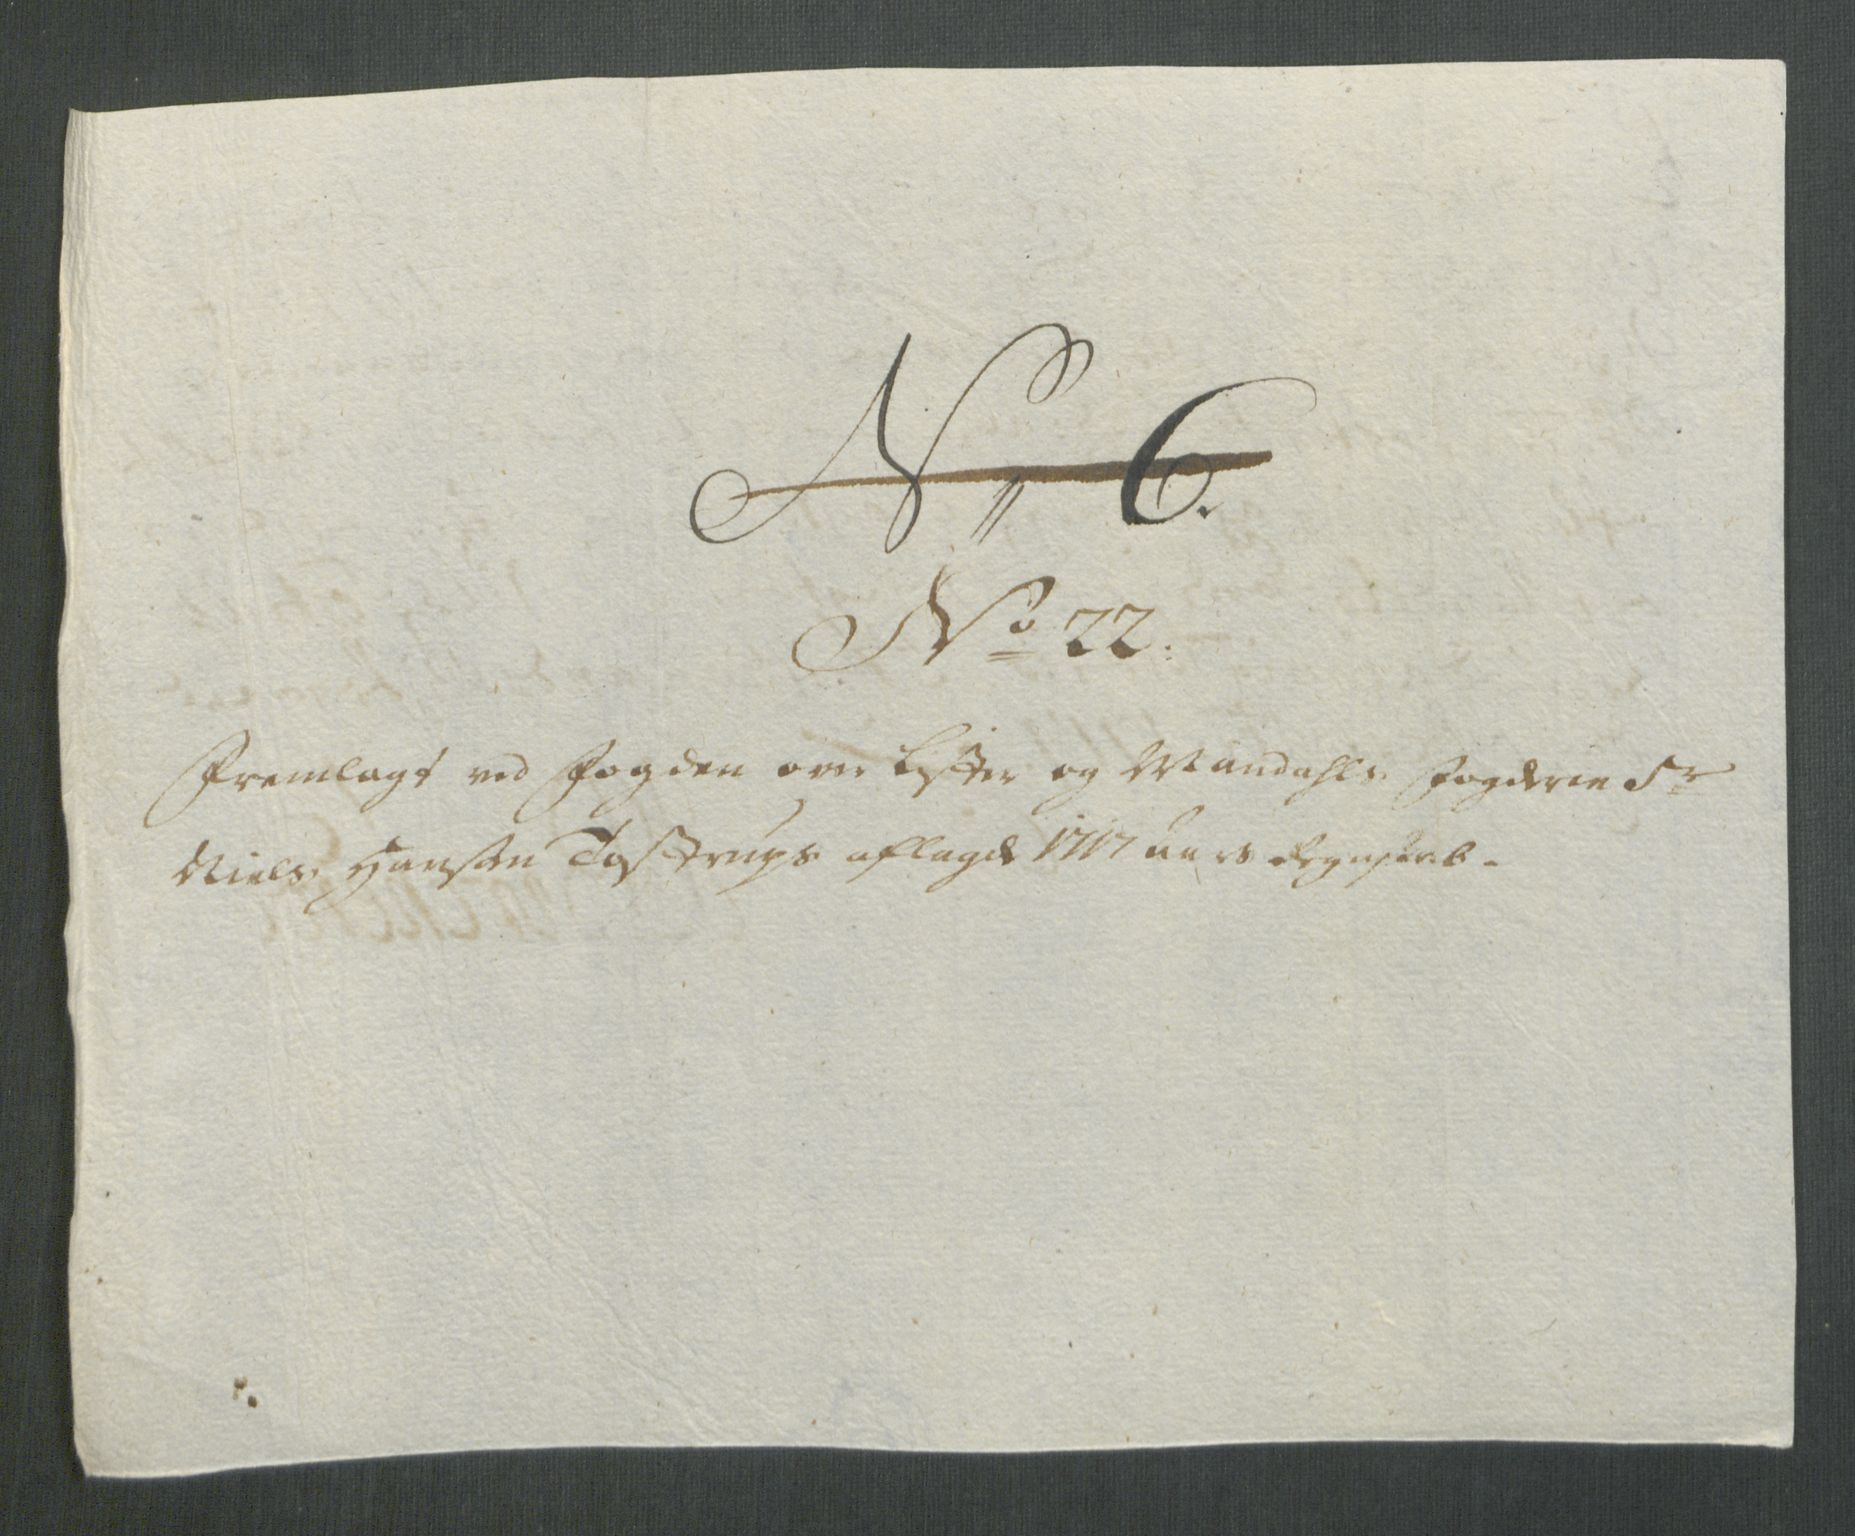 N 6.
No 22.
Fremlagt ved Fogden over Lister og Mandahls Fogderie Sr
Niels Hansen Tostrups aflagde 1717 aars Regnskab.